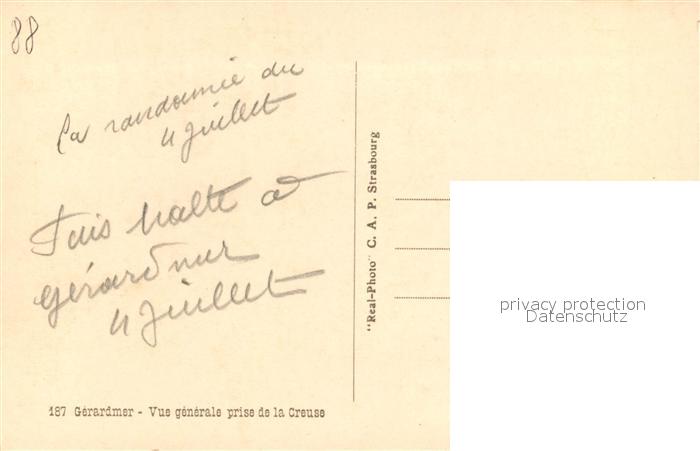 88
la randonnée du
4 Juillet
Puis halte à
Gérardmer
4 Juillet
"Real-Photo" C. A. P. Strasbourg
187 Gérardmer - Vue générale prise de la Creuse
privacy protection
Datenschutz